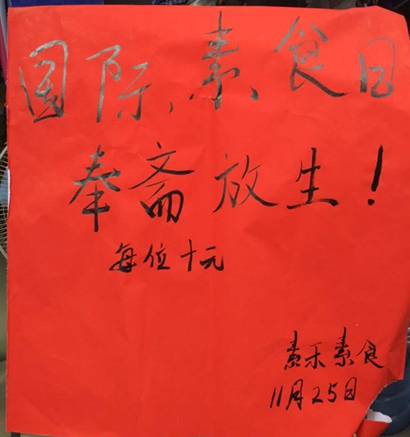 国际素食日
奉斋放生!
每位十元
素乐素食
11月25日